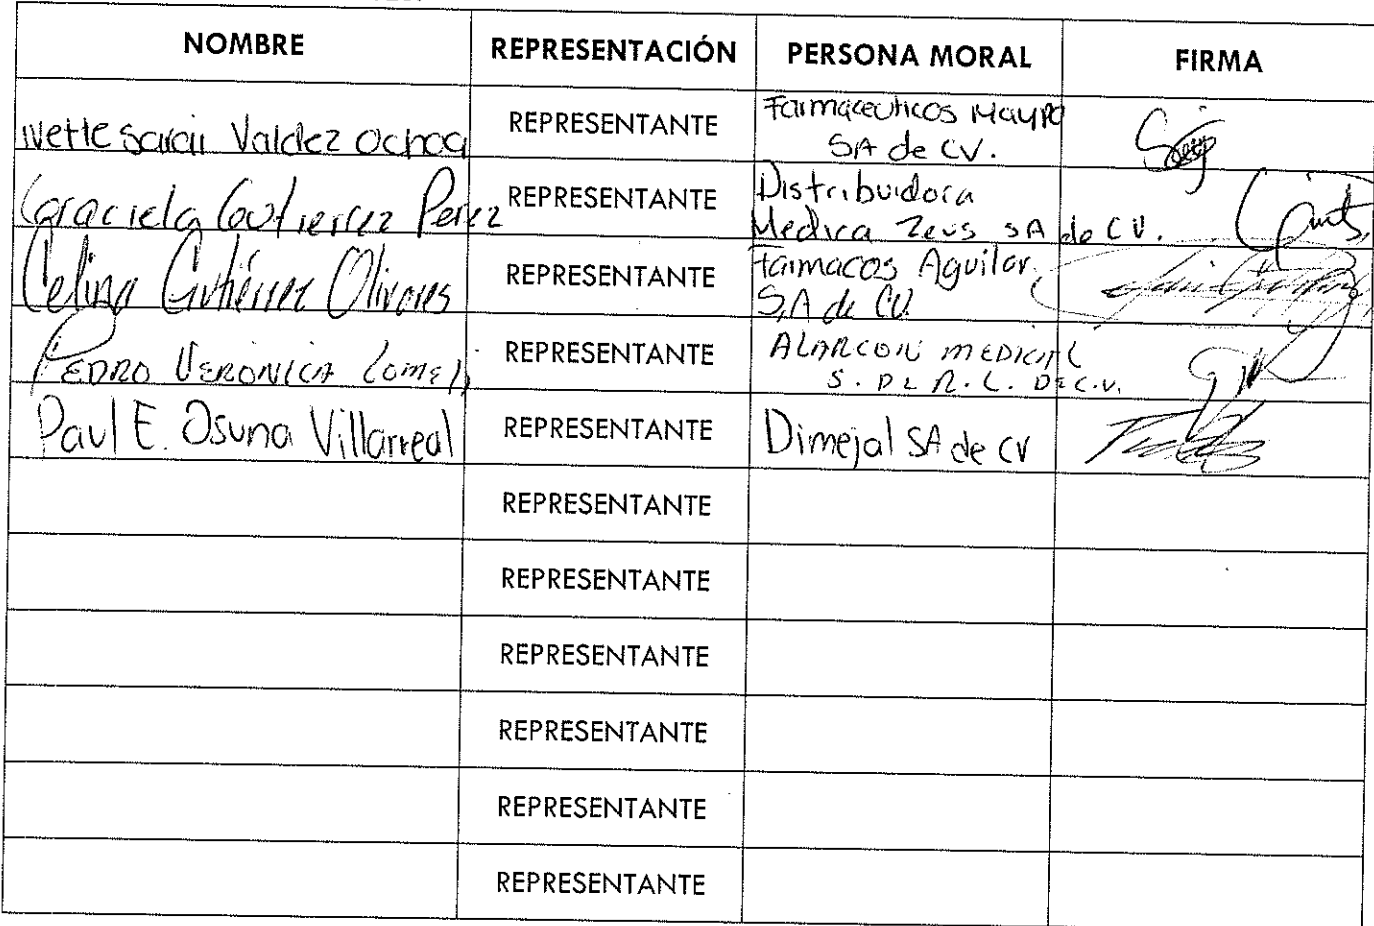 NOMBRE REPRESENTACIÓN PERSONA MORAL FIRMA
Ivette Sarair Valdez Ochoa REPRESENTANTE Farmaceuticos Maypo
SA de CV.
Graciela Gutierrez Perez REPRESENTANTE Distribuidora
Medica Zeus SA de CV.
Celina Gutiérrez Olivares REPRESENTANTE Farmacos Aguilar
S.A de CV.
PEDRO VERONICA Lomeli REPRESENTANTE ALARCON MEDICAL
S. DE R. L. DE C.V.
Paul E. Osuna Villarreal REPRESENTANTE Dimejal SA de CV
REPRESENTANTE
REPRESENTANTE
REPRESENTANTE
REPRESENTANTE
REPRESENTANTE
REPRESENTANTE